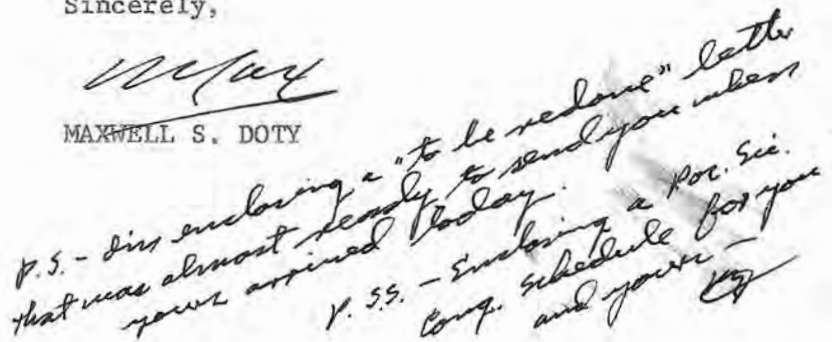 Sincerely,
Max
MAXWELL S. DOTY
P.S. - Im enclosing a "to be redone" letter
that was almost ready to send you when
yours arrived today.
P.SS. - Enclosing a Pac. Sci.
Cong. Schedule for you
and yours -